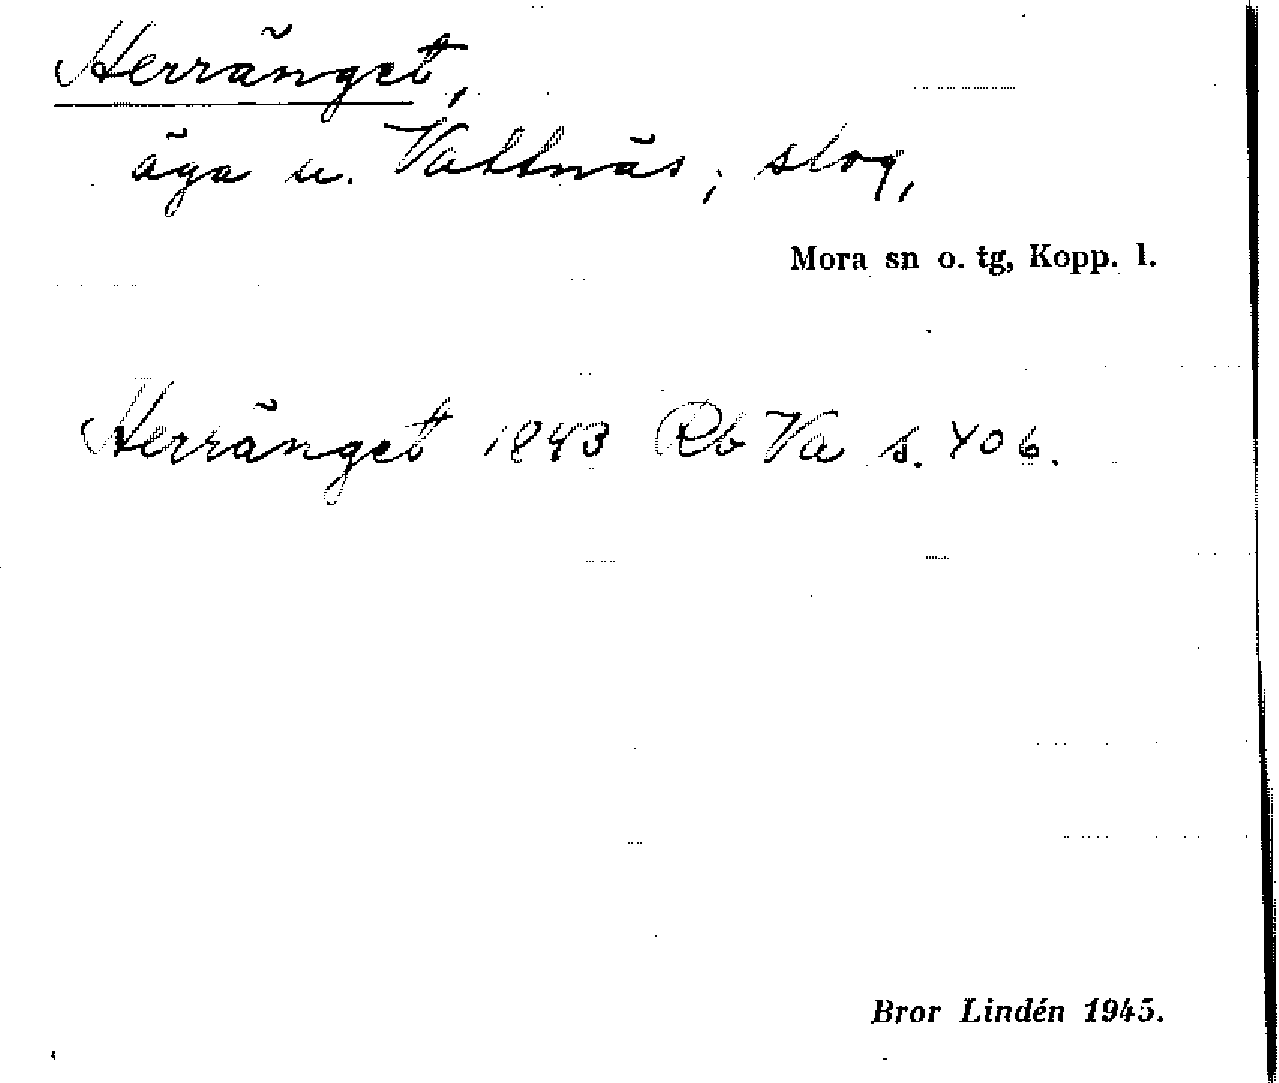 Herränget,
äga u. Vattnäs; slog,
Mora sn o. tg, Kopp. l.
Herränget 1843 Rb Va s. 406.
Bror Lindén 1945.